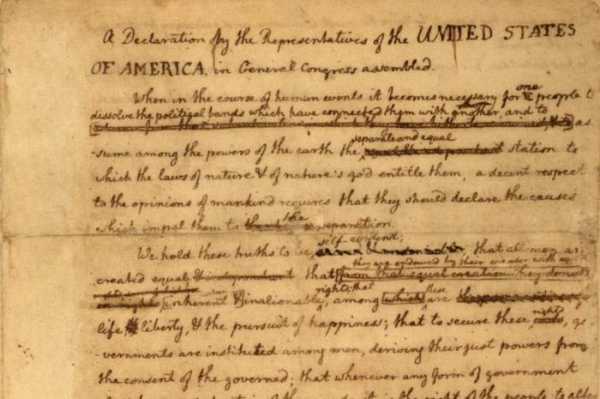 A Declaration by the Representatives of the UNITED STATES
OF AMERICA, in General Congress assembled.
When in the course of human events it becomes necessary for one people t
dissolve the political bands which have connected them with another, and to
as
separate and equal
-sume among the powers of the earth the station to
which the laws of nature & of nature's god entitle them, a decent respect
to the opinions of mankind requires that they should declare the causes
which impel them to the separation.
self-evident;
We hold these truths to be that all men are
they are endowed by their creator with
created equal that from that equal creation they
rights; that these
inherent & inalienable, among which are
life liberty, & the pursuit of happiness; that to secure these rights, go
-vernments are instituted among men, deriving their just powers from
the consent of the governed; that whenever any form of government
it is the right of the people to